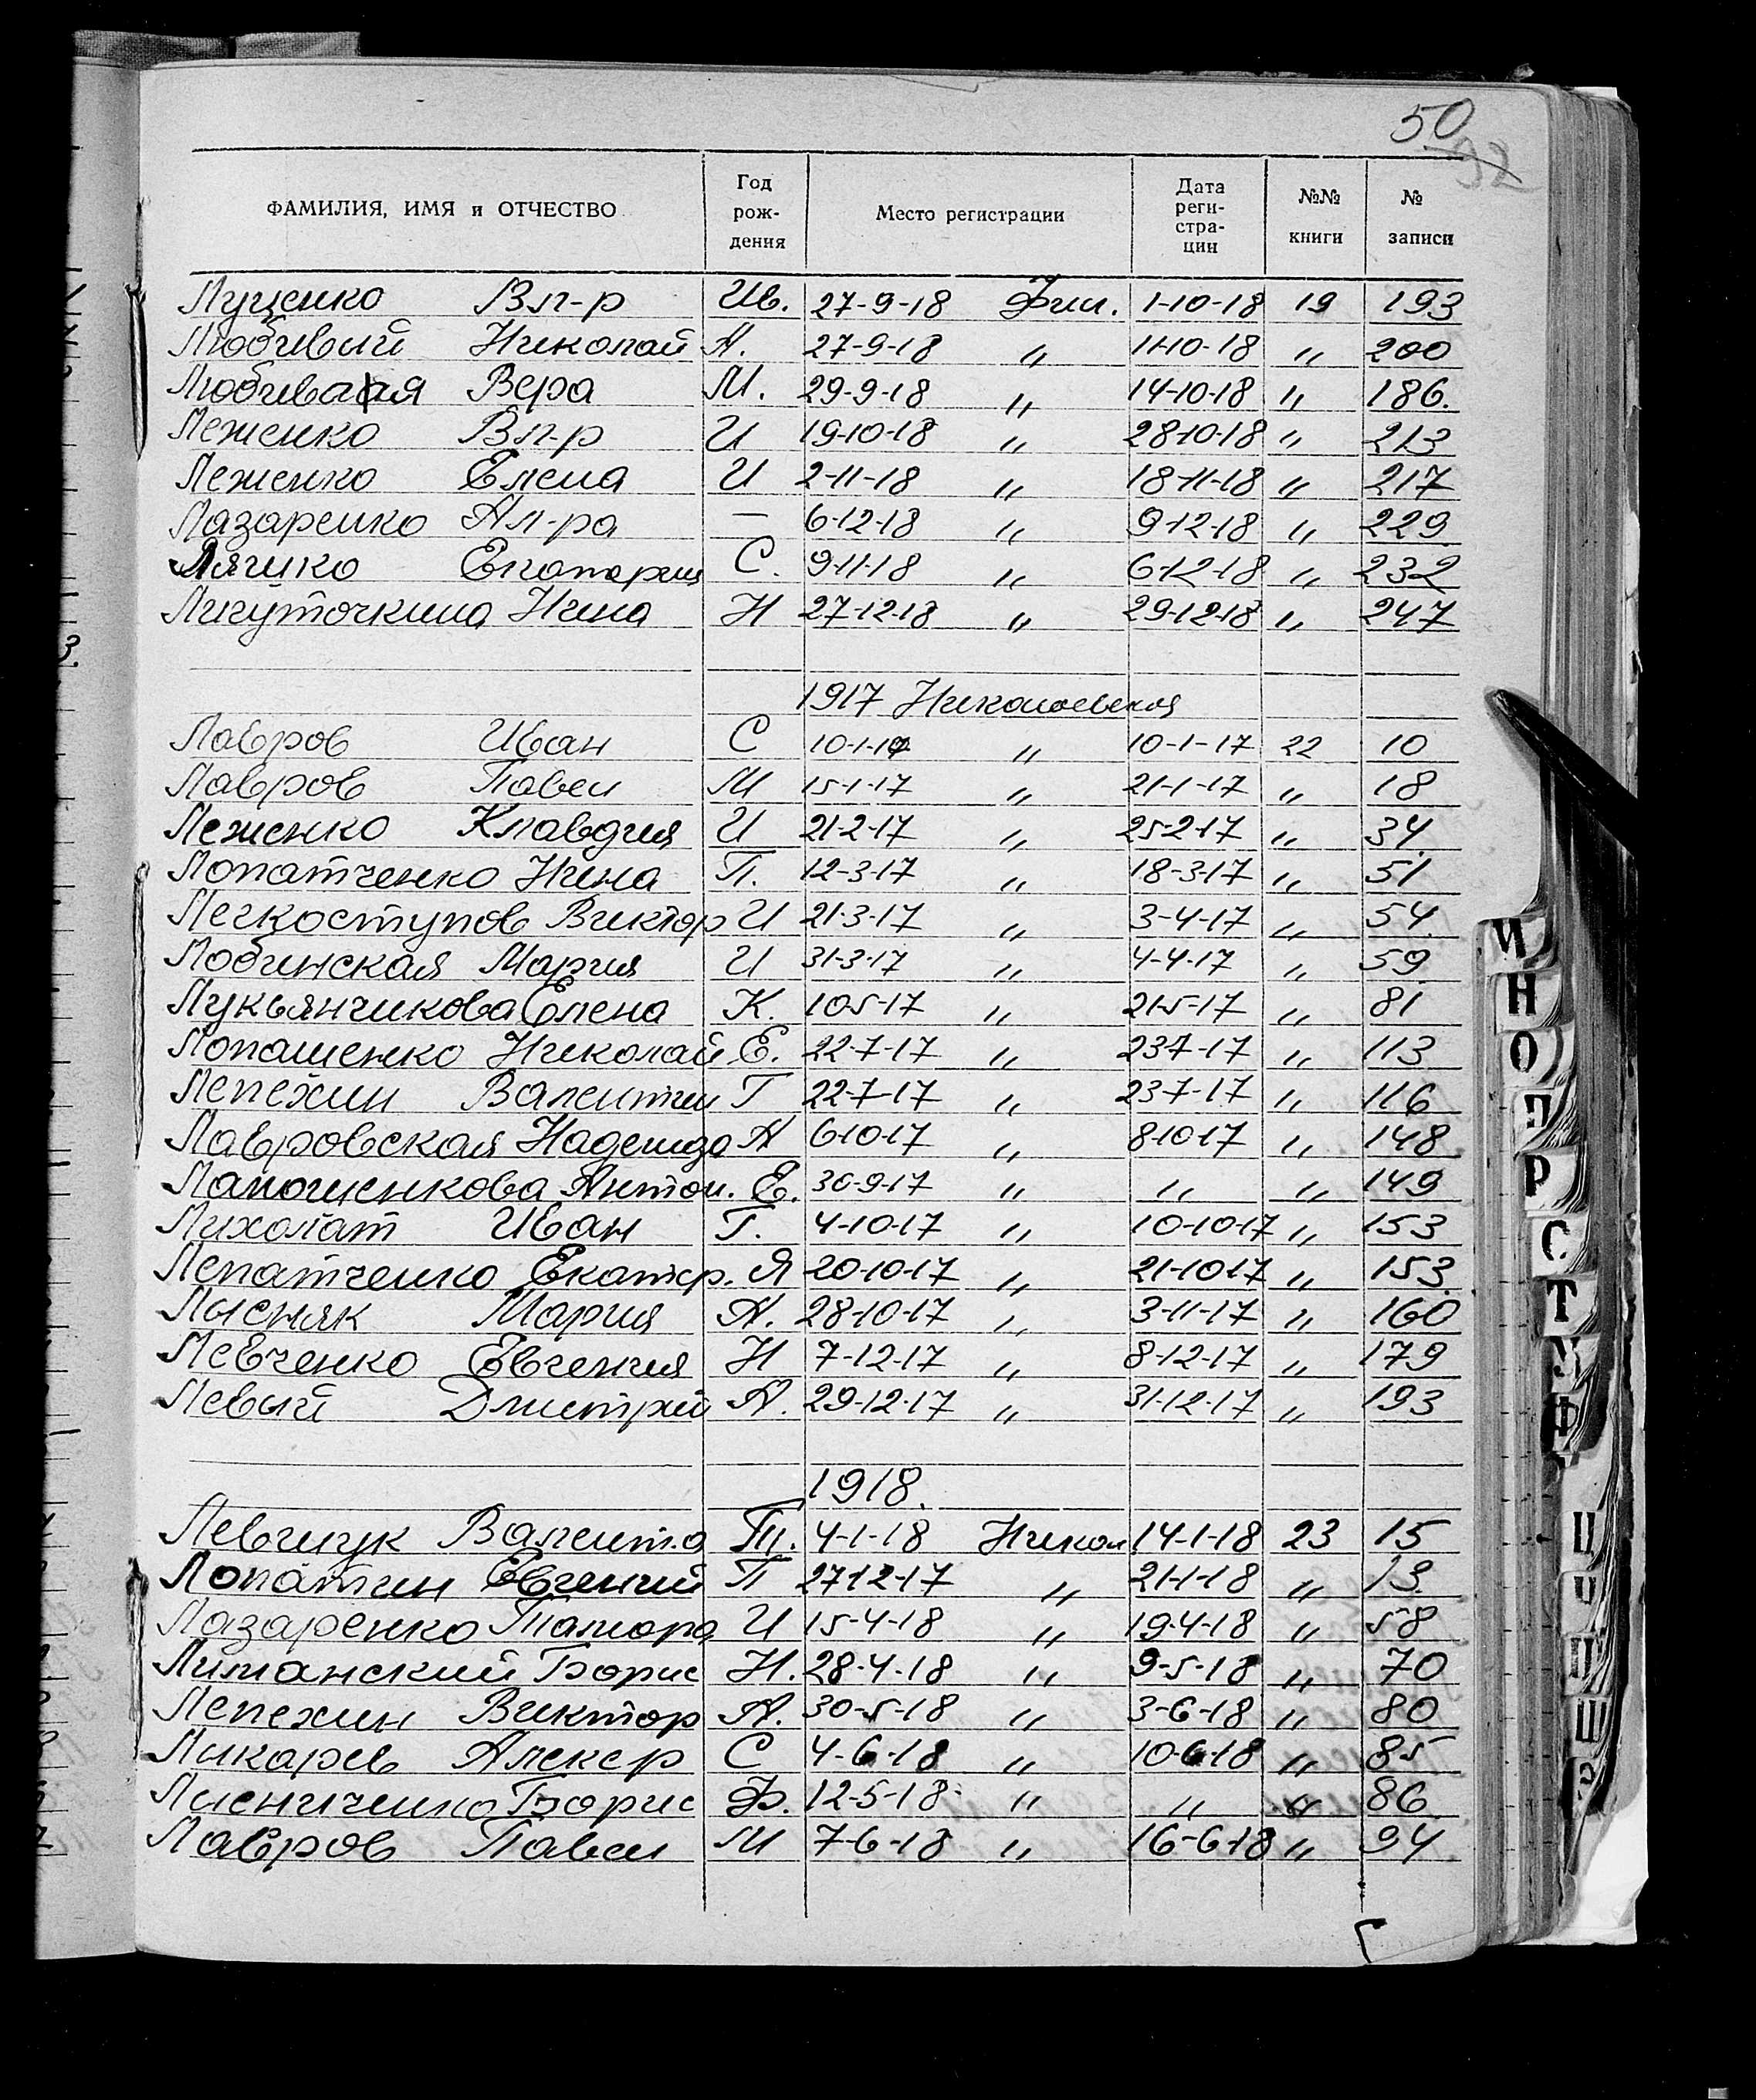 50
92
ФАМИЛИЯ, ИМЯ и ОТЧЕСТВО Год рождения Место регистрации Дата регистрации №№ книги № записи
Луценко Вл-р Ив. 27-9-18 Фил. 1-10-18 19 193
Любивый Николай А. 27-9-18 " 11-10-18 " 200
Любивая Вера М. 29-9-18 " 14-10-18 " 186.
Леженко Вл-р И 19-10-18 " 28-10-18 " 213
Леженко Елена И 2-11-18 " 18-11-18 " 217
Лазаренко Ал-ра — 6-12-18 " 9-12-18 " 229
Лячко С. 9-11-18 " 6-12-18 " 232
Лигуточкина Нина Н 27-12-18 " 29-12-18 " 247
1917 Николаевская
Лавров Иван С 10-1-17 " 10-1-17 22 10
Лавров Павел М 15-1-17 " 21-1-17 " 18
Леженко Клавдия И 21-2-17 " 25-2-17 " 34
Лопатченко Нина П. 12-3-17 " 18-3-17 " 51
Легкоступов Виктор И 21-3-17 " 3-4-17 " 54
Лобинская Мария И 31-3-17 " 4-4-17 " 59
Лукьянчикова Елена К. 10-5-17 " 21-5-17 " 81
Лопашенко Николай Е. 22-7-17 " 23-7-17 " 113
Лепехин Валентин Г 22-7-17 " 23-7-17 " 116
Лавровская Надежда А 6-10-17 " 8-10-17 " 148
Лапошенкова Антон. Е. 30-9-17 " " " 149
Лихолат Иван Г. 4-10-17 " 10-10-17 " 153
Лепатченко Екатер. Я 20-10-17 " 21-10-17 " 153
Лысняк Мария А. 28-10-17 " 3-11-17 " 160
Левченко Евгения Н 7-12-17 " 8-12-17 " 179
Левый Дмитрий А. 29-12-17 " 31-12-17 " 193
1918.
Левчук 4-1-18 Никол 14-1-18 23 15
Лопатин Евгений П 27-12-17 " 21-1-18 " 13
Лазаренко Тамара И 15-4-18 " 19-4-18 " 58
Лиманский Борис Н. 28-4-18 " 9-5-18 " 70
Лепехин Виктор А. 30-5-18 " 3-6-18 " 80
Ликарев Алекср С 4-6-18 " 10-6-18 " 85
Лысниченко Борис Ф. 12-5-18 " " " 86
Лавров Павел М 7-6-18 " 16-6-18 " 94
И
Н
О
П
Р
С
Т
У
Ф
Ц
Ч
Ш